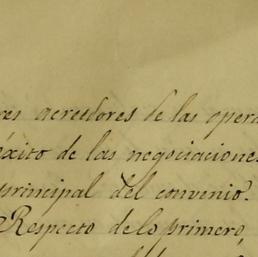 res acreedores de las opera
éxito de las negociaciones
principal del convenio.
Respecto de lo primero,